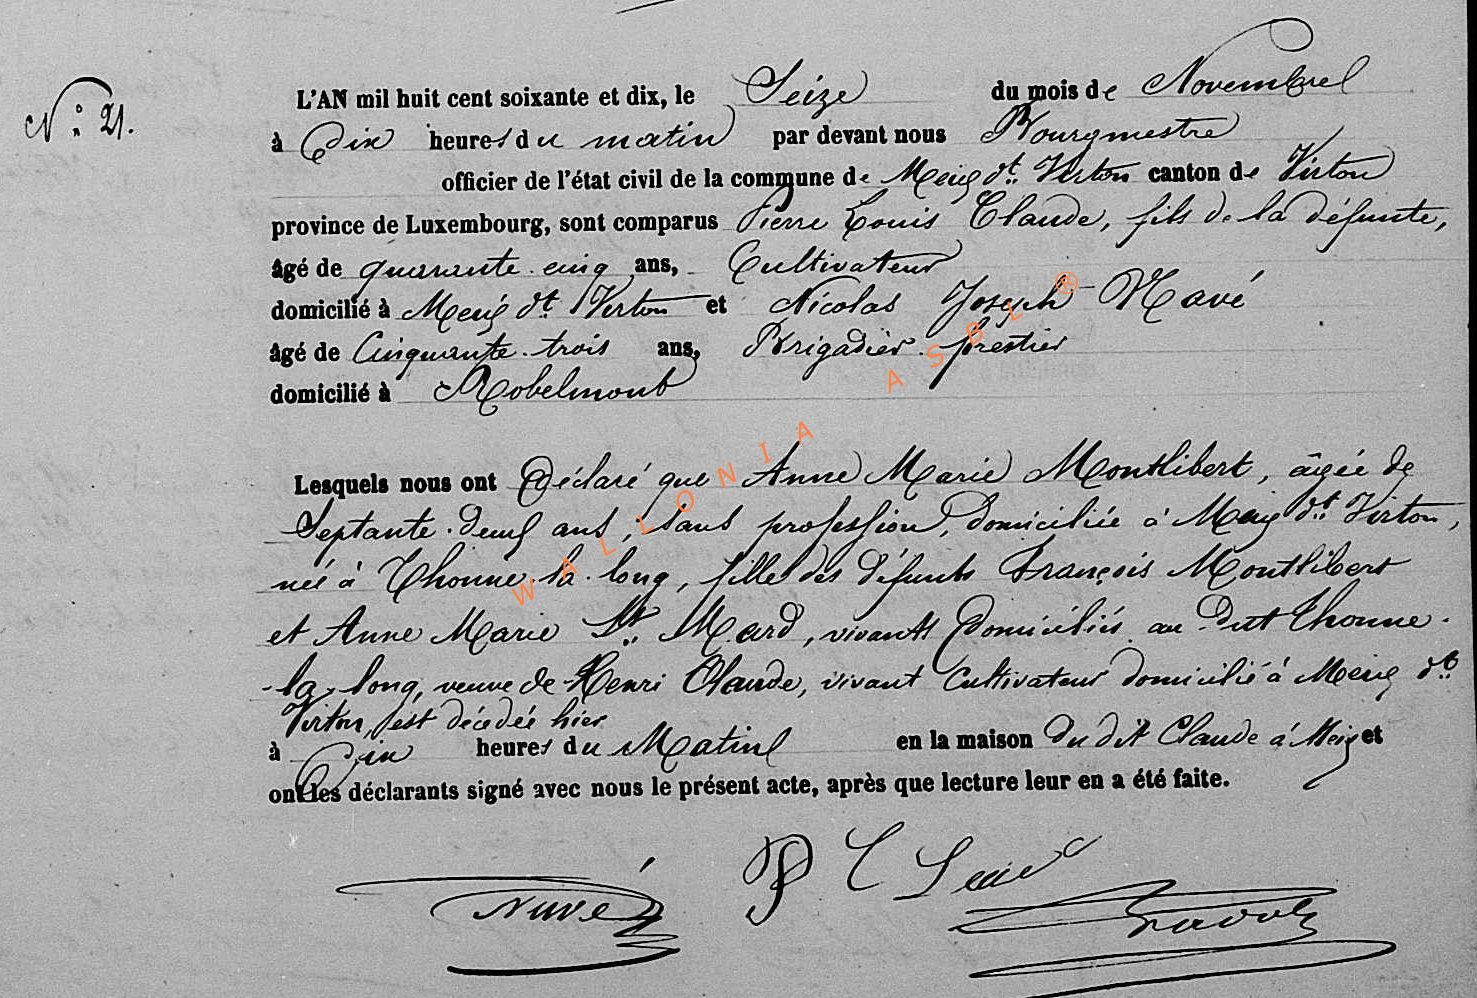 N° 21.
L'AN mil huit cent soixante et dix, le Seize du mois de Novembre
à Dix heures du matin par devant nous Bourgmestre
officier de l'état civil de la commune de Meix dt. Virton canton de Virton
province de Luxembourg, sont comparus Pierre Louis Claude, fils de la défunte,
âgé de quarante-cinq ans, Cultivateur
domicilié à Meix dt. Virton et Nicolas Joseph Navé
âgé de Cinquante-trois ans, Brigadier forestier
domicilié à Robelmont
Lesquels nous ont Déclaré que Anne Marie Montlibert, âgée de
Septante-deux ans, sans profession, domiciliée à Meix dt. Virton,
née à Thonne-la-long, fille des défunts François Montlibert
et Anne Marie St. Mard, vivants domiciliés au dit Thonne-
-la-long, veuve de Henri Claude, vivant Cultivateur domicilié à Meix dt.
Virton, est décédée hier
à Dix heures du Matin en la maison du dit Claude à Meix et
ont les déclarants signé avec nous le présent acte, après que lecture leur en a été faite.
Navé P L
WALLONIA ASBL ®